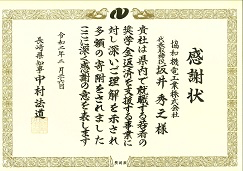 感謝状
協和機電工業株式会社
代表取締役 坂井秀之様
貴社は県内で就職する若者の
奨学金返済を支援する事業に
対し深いご理解を示され
多額の寄附をされました
ここに深く感謝の意を表します
令和二年二月
長崎県知事 中村法道